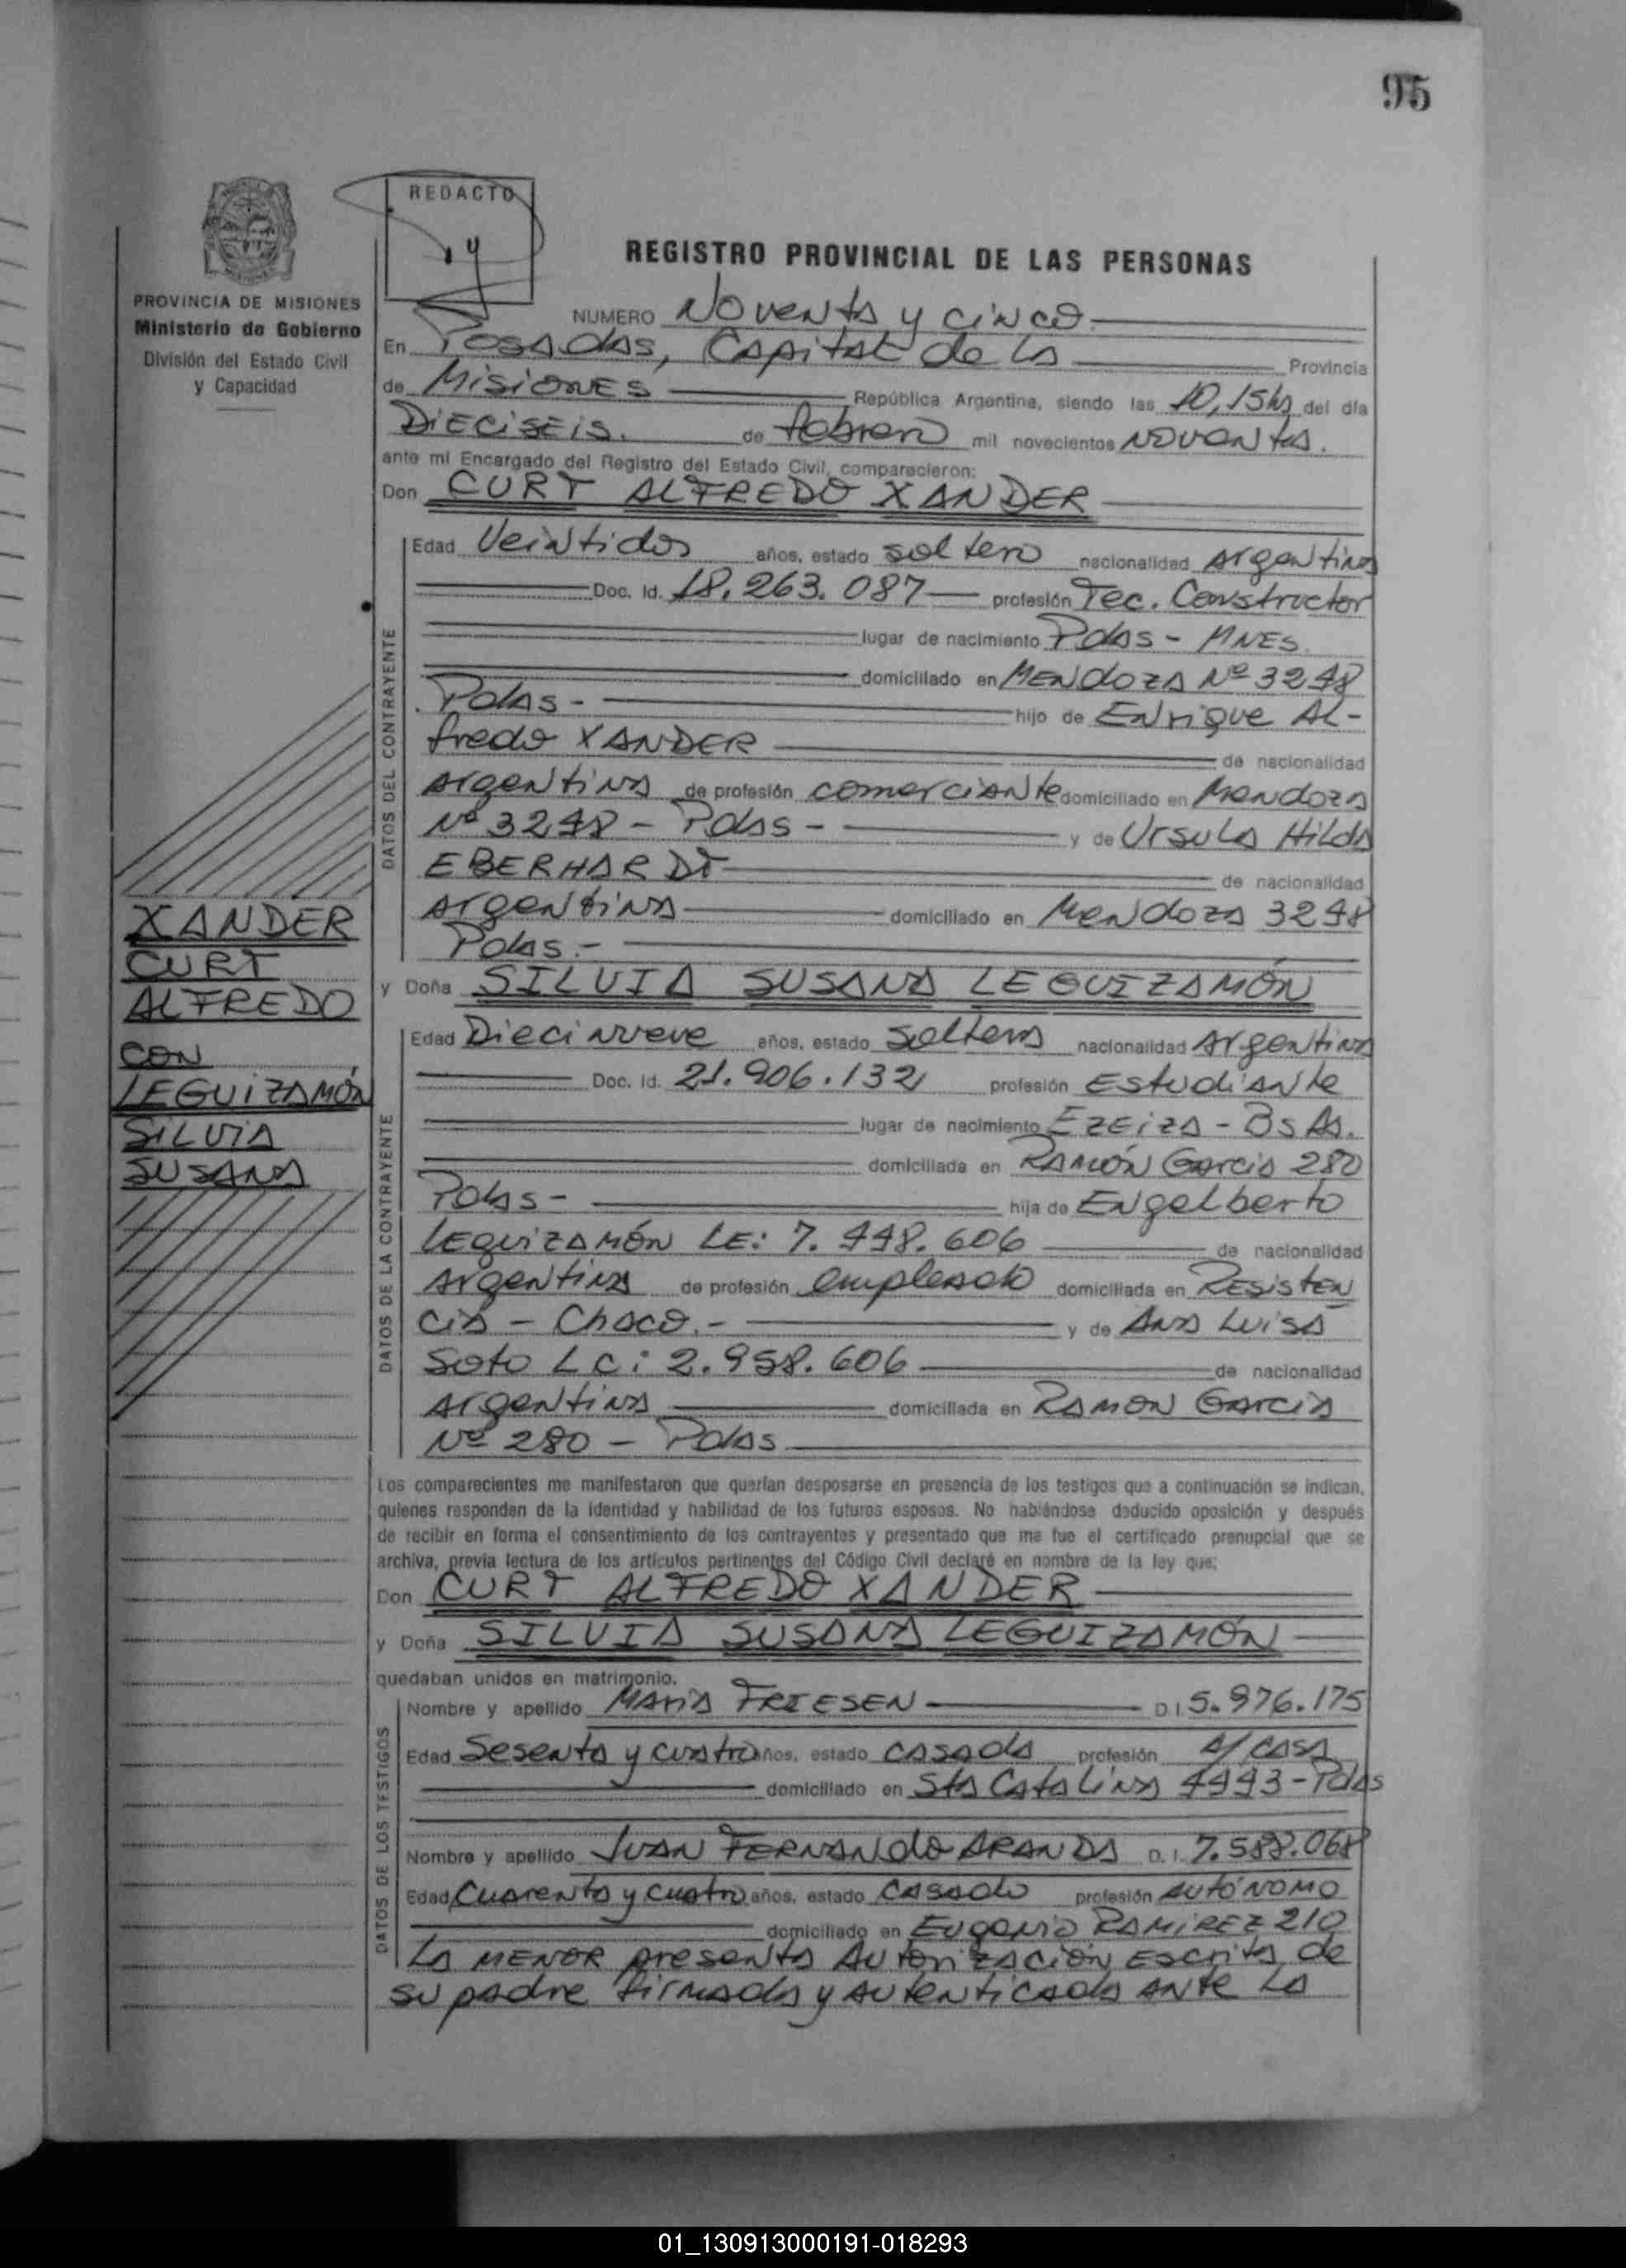 95
REDACTO
REGISTRO PROVINCIAL DE LAS PERSONAS
PROVINCIA DE MISIONES
Ministerio de Gobierno
División del Estado Civil
y Capacidad
NUMERO Noventa y cinco
En Posadas, Capital de la Provincia
de Misiones República Argentina, siendo las 10,15hs del día
Dieciseis. de febrero mil novecientos noventa.
ante mi Encargado del Registro del Estado Civil, comparecieron:
Don CURT ALFREDO XANDER
DATOS DEL CONTRAYENTE
Edad Veintidos años, estado soltero nacionalidad Argentina
Doc. Id. 18.263.087 profesión Tec. Constructor
lugar de nacimiento Pdas - Mnes.
domiciliado en Mendoza Nº 3248
Pdas - hijo de Enrique Al-
fredo XANDER de nacionalidad
Argentina de profesión comerciante domiciliado en Mendoza
Nº 3248 - Pdas - y de Ursula Hilda
EBERHARDT de nacionalidad
Argentina domiciliado en Mendoza 3248
Pdas.-
y Doña SILVIA SUSANA LEGUIZAMÓN
XANDER
CURT
ALFREDO
CON
LEGUIZAMÓN
SILVIA
SUSANA
DATOS DE LA CONTRAYENTE
Edad Diecinueve años, estado soltera nacionalidad Argentina
Doc. Id. 21.906.132 profesión Estudiante
lugar de nacimiento Ezeiza - Bs As.
domiciliada en Ramón Garcia 280
Pdas - hija de Engelberto
Leguizamón LE: 7.448.606 de nacionalidad
Argentina de profesión empleado domiciliada en Resisten
cia - Chaco.- y de Ana Luisa
Soto LC: 2.958.606 de nacionalidad
Argentina domiciliada en Ramon Garcia
Nº 280 - Pdas.
Los comparecientes me manifestaron que querían desposarse en presencia de los testigos que a continuación se indican,
quienes responden de la identidad y habilidad de los futuros esposos. No habiéndose deducido oposición y después
de recibir en forma el consentimiento de los contrayentes y presentado que me fue el certificado prenupcial que se
archiva, previa lectura de los artículos pertinentes del Código Civil declaré en nombre de la ley que:
Don CURT ALFREDO XANDER
y Doña SILVIA SUSANA LEGUIZAMÓN
quedaban unidos en matrimonio.
DATOS DE LOS TESTIGOS
Nombre y apellido Maria FRIESEN D.I. 5.976.175
Edad Sesenta y cuatro años, estado casada profesión a/casa
domiciliado en Sta Catalina 4493 - Pdas
Nombre y apellido Juan Fernando ARANDA D.I. 7.588.068
Edad Cuarenta y cuatro años, estado casado profesión autónomo
domiciliado en Eugenio Ramirez 210
La menor presenta autorización escrita de
su padre firmada y autenticada ante la
01_130913000191-018293